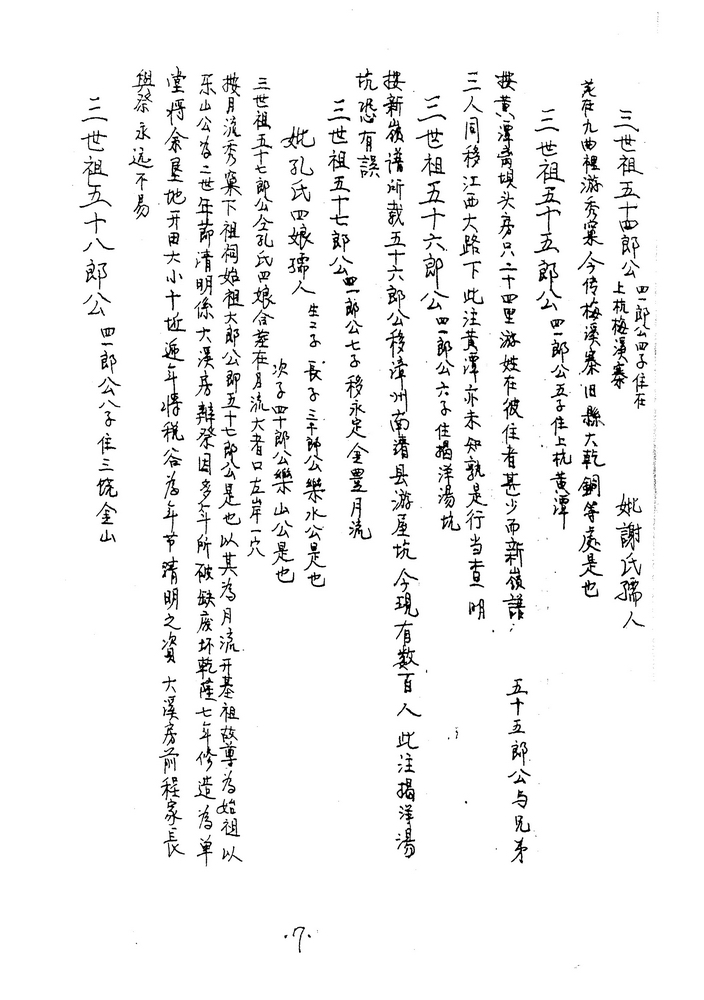 三世祖五十四郎公 四一郎公四子住在上杭梅溪寨 妣謝氏孺人
葬在九曲裡游秀窠今传梅溪寨旧縣大乾銅等處是也
三世祖五十五郎公 四一郎公五子住上杭黄潭
按黄潭黄坝头房只二十四里游姓在彼住者甚少而新嶺譜 五十五郎公与兄弟
三人同移江西大路下此注黄潭亦未知孰是行当查明
三世祖五十六郎公 四一郎公六子住揭洋湯坑
按新嶺譜所載五十六郎公移漳州南靖县游屋坑今現有数百人此注揭洋湯
坑恐有誤
三世祖五十七郎公 四一郎公七子移永定金豐月流
妣孔氏四娘孺人 生二子長子三十郎公樂水公是也
次子四十郎公樂山公是也
三世祖五十七郎公仝孔氏四娘合葬在月流大者口左岸一穴
按月流秀窠下祖祠始祖大郎公即五十七郎公是也以其為月流开基祖故尊為始祖以
乐山公為二世年節清明係大溪房辦祭因多年所破缺废坏乾隆七年修造為单
堂将余垦地开田大小十坵递年将税谷為年节清明之資大溪房前程家長
與祭永远不易
三世祖五十八郎公 四一郎公八子住三坑金山
·7·